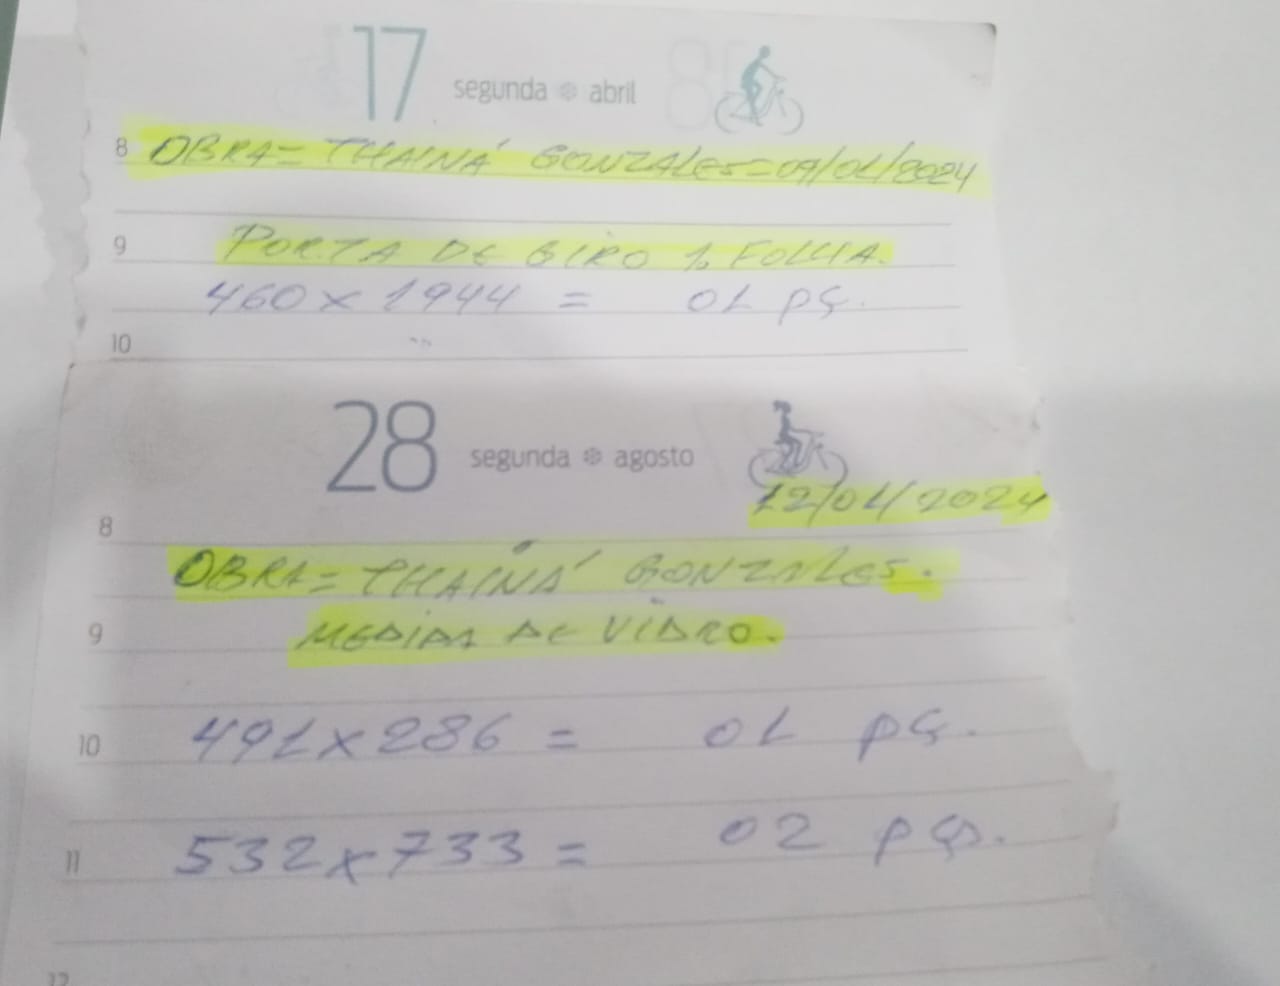 17 segunda abril
8 OBRA= THAINÁ GONZALES=09/01/2024
9 PORTA DE GIRO 1. FOLHA.
460 x 1944 = 01 pç.
10
28 segunda agosto
12/01/2024
8
OBRA= THAINÁ GONZALES.
9 MEDIDA DE VIDRO.
10 491x286 = 01 pç.
11 532x733 = 02 pçs.
12